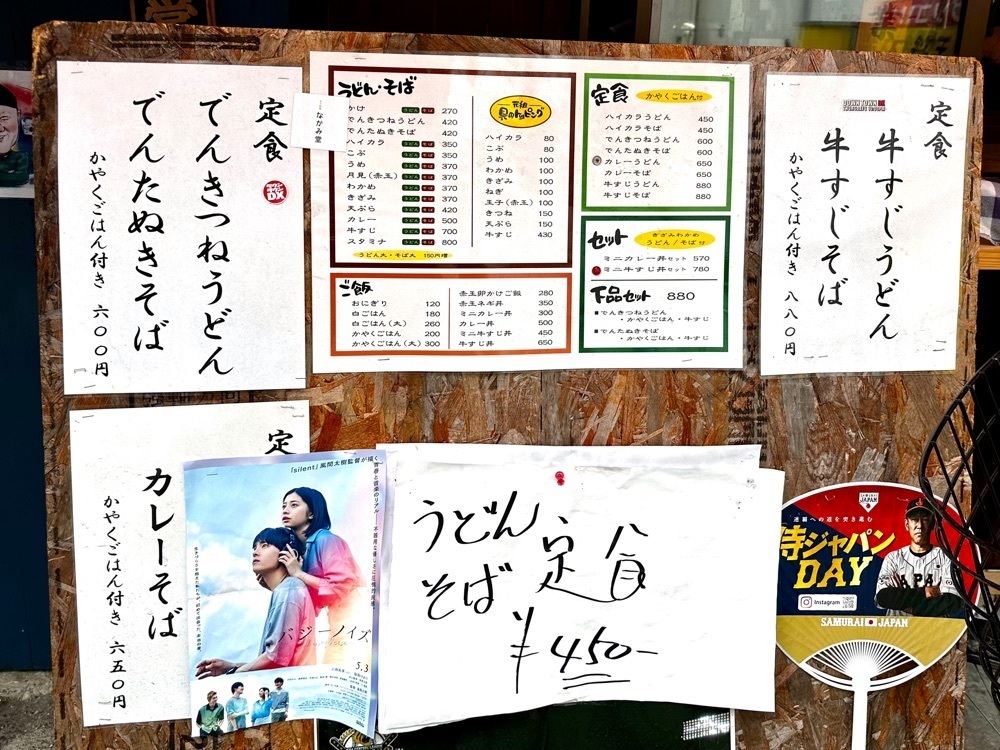 定食
でんきつねうどん
でんたぬきそば
かやくごはん付き 六〇〇円
なかみ堂
うどん・そば
かけ うどん そば 270
でんきつねうどん 420
でんたぬきそば 420
ハイカラ うどん そば 350
こぶ うどん そば 350
うめ うどん そば 370
月見(赤玉) うどん そば 370
わかめ うどん そば 370
きざみ うどん そば 370
天ぷら うどん そば 420
カレー うどん そば 500
牛すじ うどん そば 700
スタミナ うどん そば 800
うどん大・そば大 150円増
元祖
具のトッピング
ハイカラ 80
こぶ 80
うめ 100
わかめ 100
きざみ 100
ねぎ 100
玉子(赤玉) 100
きつね 150
天ぷら 150
牛すじ 430
ご飯
おにぎり 120
白ごはん 180
白ごはん(大) 260
かやくごはん 200
かやくごはん(大) 300
赤玉卵かけご飯 280
赤玉ネギ丼 350
ミニカレー丼 300
カレー丼 500
ミニ牛すじ丼 450
牛すじ丼 650
定食 かやくごはん付
ハイカラうどん 450
ハイカラそば 450
でんきつねうどん 600
でんたぬきそば 600
カレーうどん 650
カレーそば 650
牛すじうどん 880
牛すじそば 880
セット きざみわかめ
うどん/そば付
ミニカレー丼セット 570
ミニ牛すじ丼セット 780
下品セット 880
■でんきつねうどん
・かやくごはん・牛すじ
■でんたぬきそば
・かやくごはん・牛すじ
DOWN TOWN
定食
牛すじうどん
牛すじそば
かやくごはん付き 八八〇円
定
カレーそば
かやくごはん付き 六五〇円
「silent」風間太樹監督が描く
音楽と青春のリアル
バジーノイズ
5.3
うどん
そば
定食
¥450-
SAMURAI JAPAN
連覇への道を突き進む
侍ジャパン
DAY
Instagram
SAMURAI JAPAN